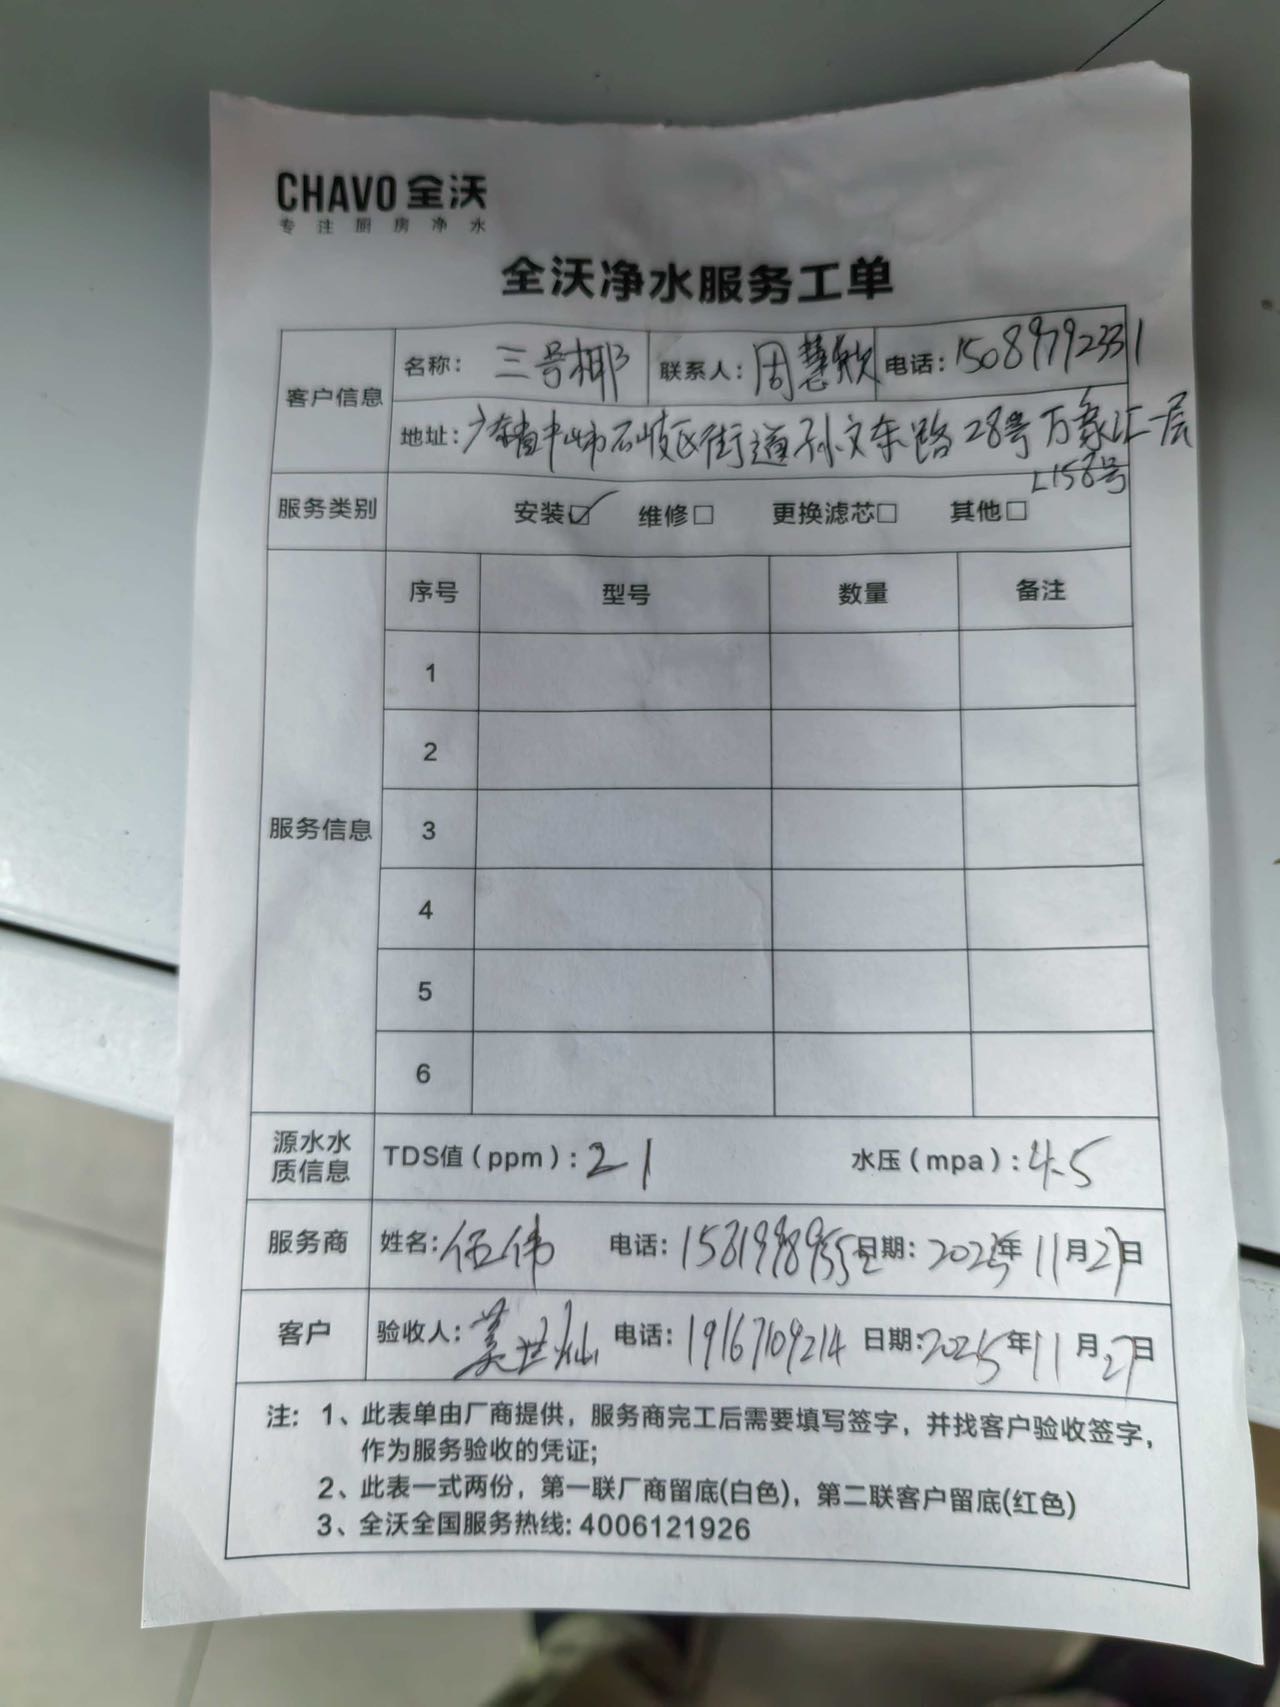 CHAVO 全沃
专注厨房净水
全沃净水服务工单
客户信息
名称：三号椰 联系人：周慧欣 电话：15089792331
地址：广东省中山市石岐区街道孙文东路28号万象汇一层
L158号
服务类别 安装☑ 维修□ 更换滤芯□ 其他□
服务信息
序号 型号 数量 备注
1
2
3
4
5
6
源水水质信息 TDS值（ppm）：21 水压（mpa）：4.5
服务商 姓名：伍伟 电话： 日期：2025年11月27日
客户 验收人： 电话：19167109214 日期：2025年11月27日
注：1、此表单由厂商提供，服务商完工后需要填写签字，并找客户验收签字，
作为服务验收的凭证；
2、此表一式两份，第一联厂商留底(白色)，第二联客户留底(红色)
3、全沃全国服务热线: 4006121926